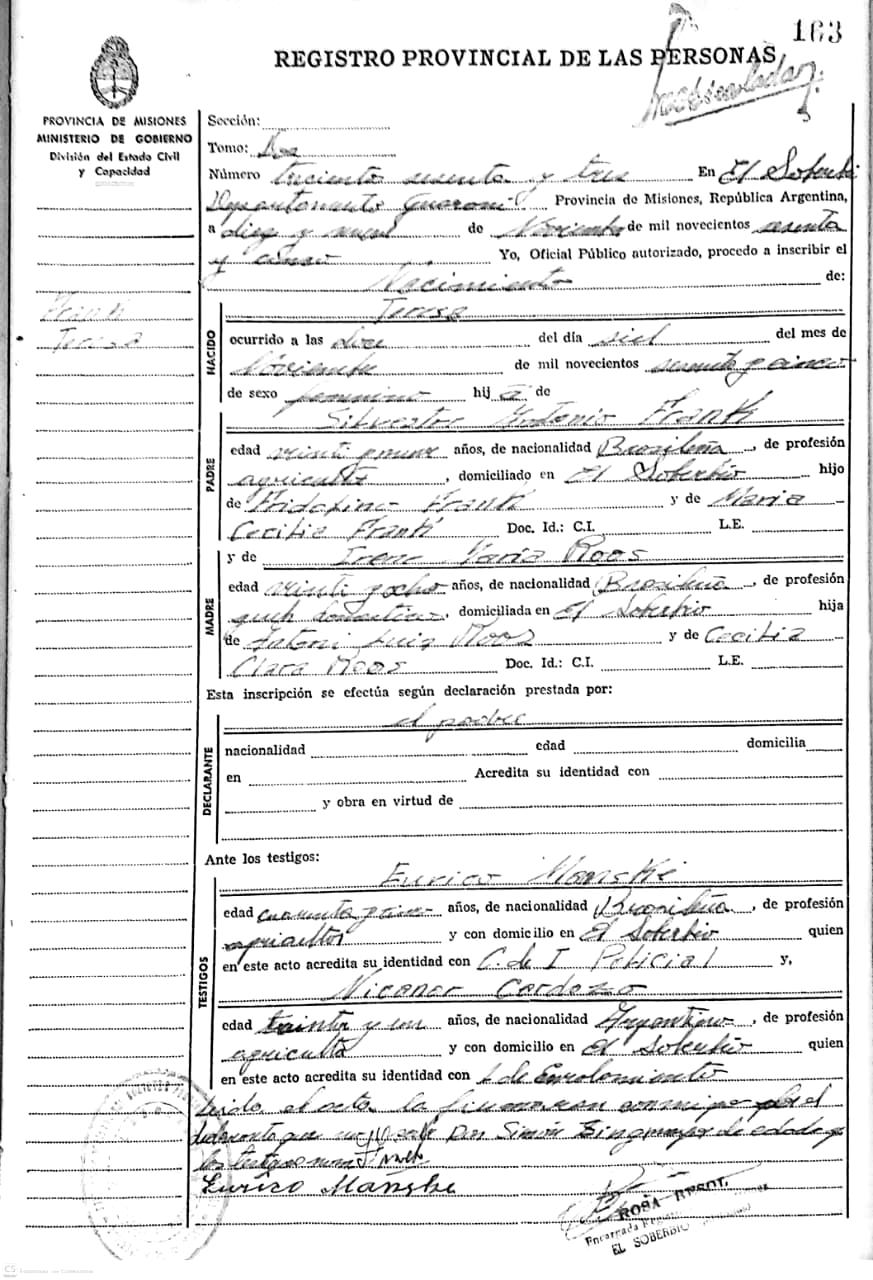 163
REGISTRO PROVINCIAL DE LAS PERSONAS
PROVINCIA DE MISIONES
MINISTERIO DE GOBIERNO
División del Estado Civil
y Capacidad
Frantt
Teresa
Sección:
Tomo: Dos
Número trciento sesenta y tres En El Soberbio
Departamento Guaraní Provincia de Misiones, República Argentina,
a diez y nueve de Noviembre de mil novecientos sesenta
y cinco Yo, Oficial Público autorizado, procedo a inscribir el
Nacimiento de:
NACIDO
Teresa
ocurrido a las doce del día siete del mes de
Noviembre de mil novecientos sesenta y cinco
de sexo femenino hij a de
PADRE
Silvestre Antonio Frantt
edad veinti y nueve años, de nacionalidad Brasileña, de profesión
agricultor, domiciliado en El Soberbio hijo
de Frantt y de Maria
Cecilia Frantt Doc. Id.: C.I. L.E.
MADRE
y de Irene Maria Roos
edad veinti y ocho años, de nacionalidad Brasileña, de profesión
domestico, domiciliada en El Soberbio hija
de Antoni Luiz Roos y de Cecilia
Clara Roos Doc. Id.: C.I. L.E.
Esta inscripción se efectúa según declaración prestada por:
DECLARANTE
el padre
nacionalidad edad domicilia
en Acredita su identidad con
y obra en virtud de
Ante los testigos:
TESTIGOS
Eurico Manske
edad cuarenta y cinco años, de nacionalidad Brasileña, de profesión
agricultor y con domicilio en El Soberbio quien
en este acto acredita su identidad con C. de I Policial y,
Nicanor Cardozo
edad trainta y un años, de nacionalidad Argentino, de profesión
agricultor y con domicilio en El Soberbio quien
en este acto acredita su identidad con L de Enrolamiento
Leido el acta la firmaran conmigo por el
Don Simón mayor de edad y
los testigos
Eurico Manske
ROSA
Encargada
EL SOBERBIO